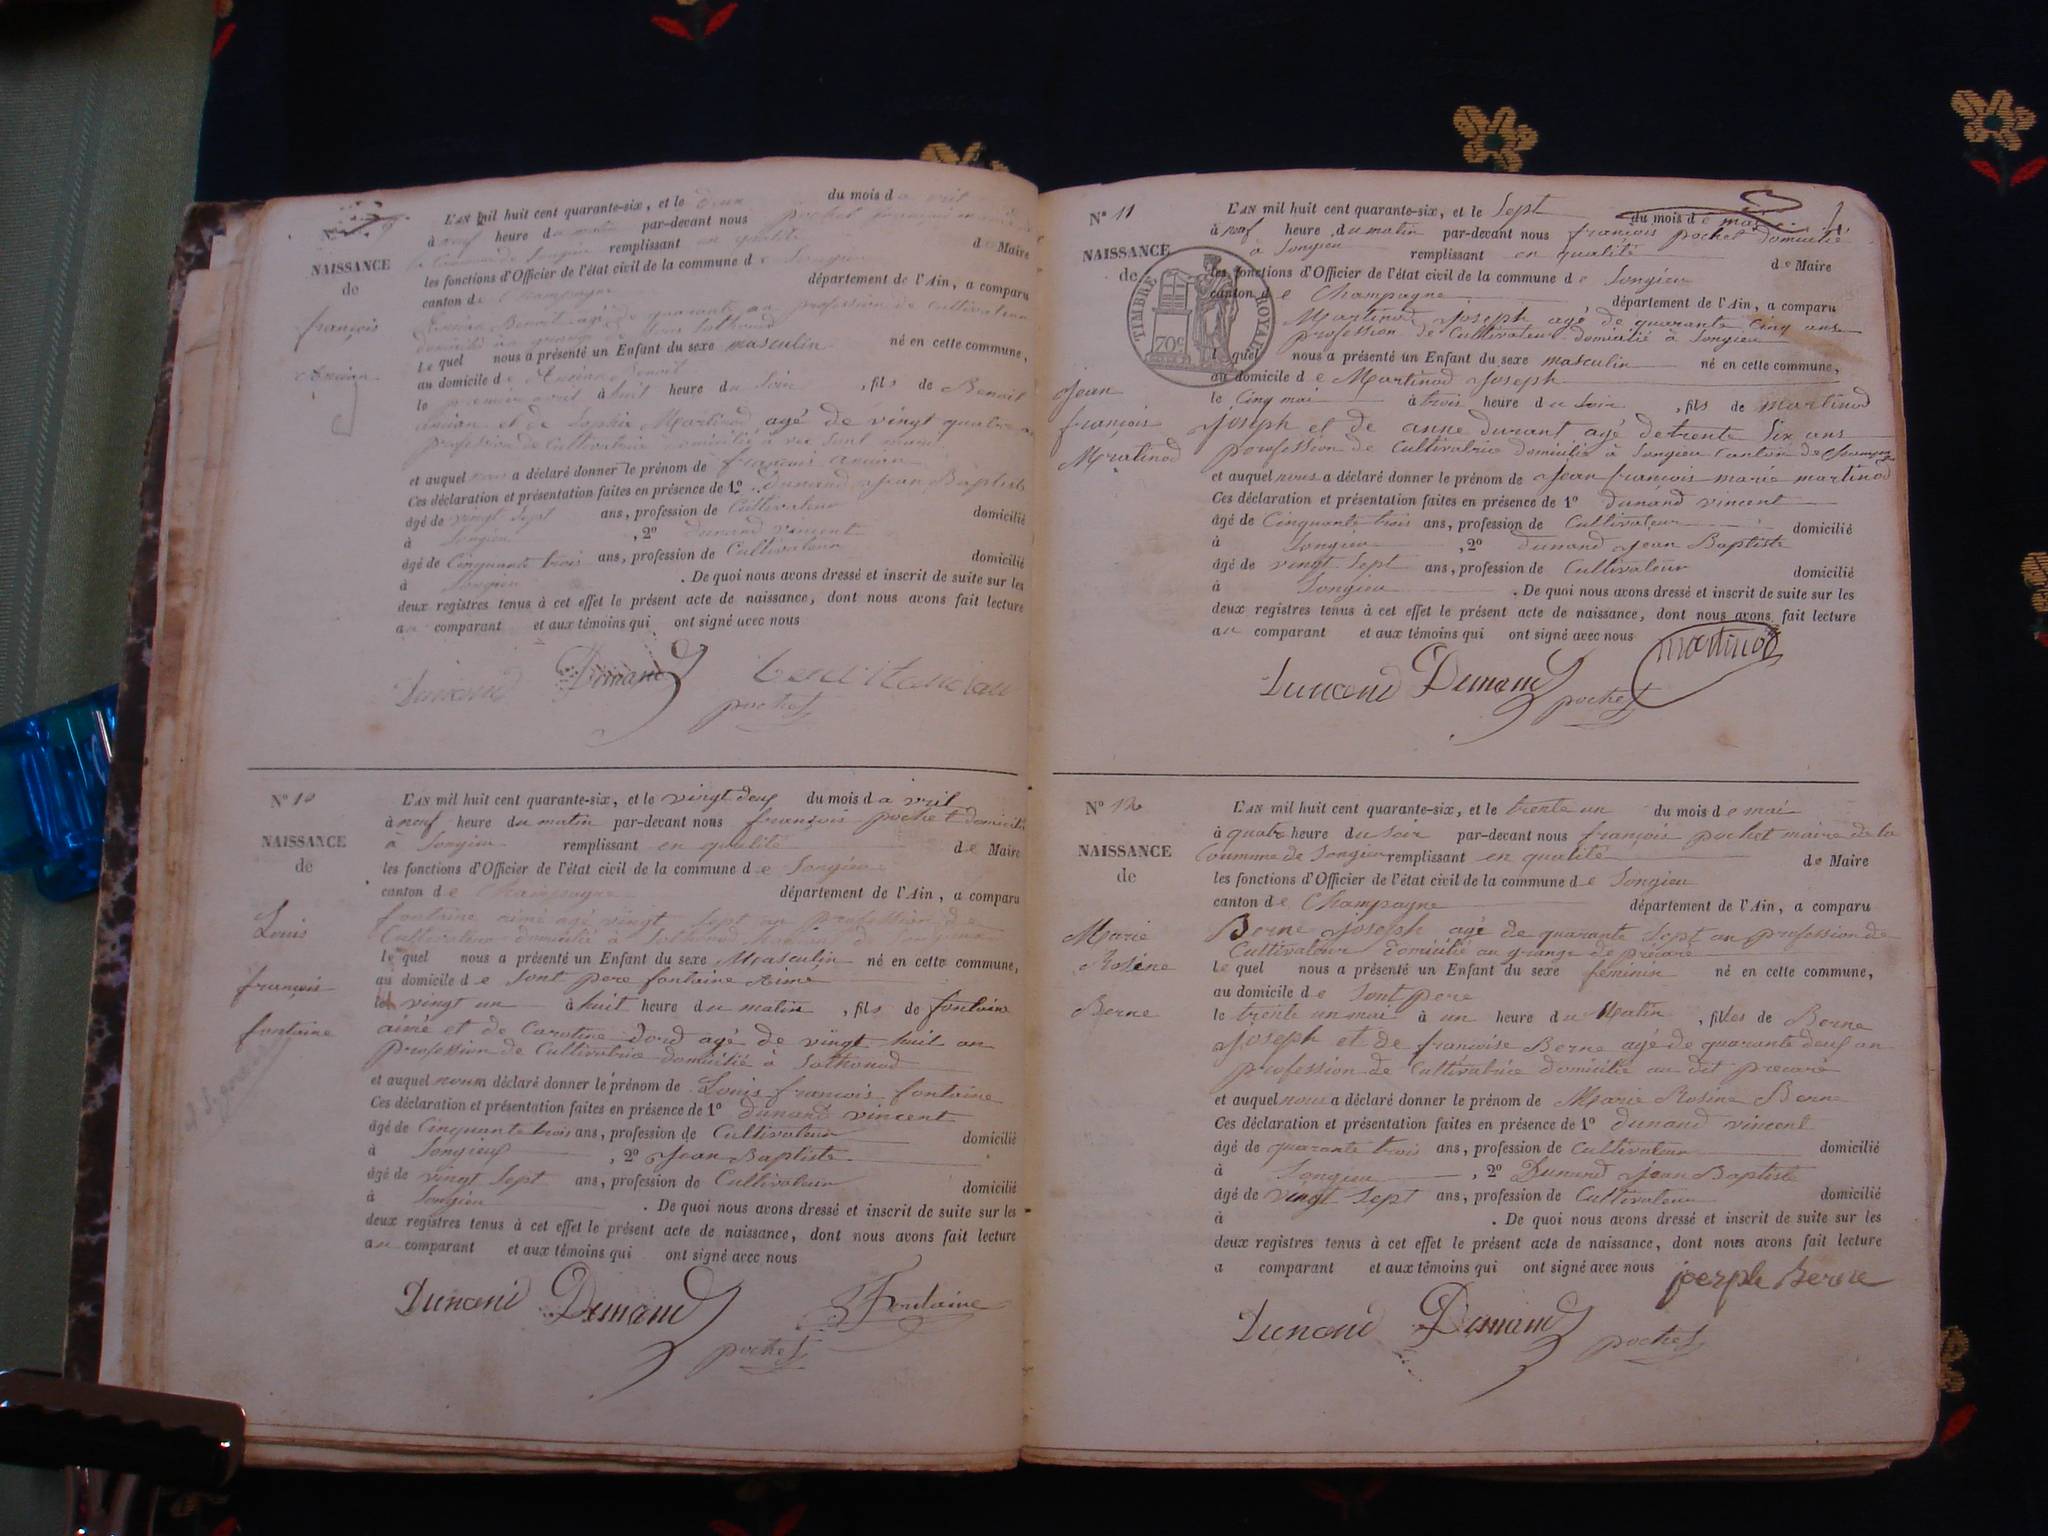 9
NAISSANCE
de
françois
ancian
L'AN mil huit cent quarante-six, et le deux du mois d avril
à neuf heure du matin par-devant nous pochet françois
la Commune de Songieu remplissant en qualité de Maire
les fonctions d'Officier de l'état civil de la commune de Songieu
canton de Champagne département de l'Ain, a comparu
ancian Benoit agé de quarante an profession de Cultivateur
domicilié
Le quel nous a présenté un Enfant du sexe masculin né en cette commune,
au domicile de Ancian Benoit
le premier avril à huit heure du Soir, fils de Benoit
ancian et de Sophie Martinod agé de vingt quatre
profession de Cultivatrice domicilié à
et auquel nous a déclaré donner le prénom de françois ancian
Ces déclaration et présentation faites en présence de 1º Dunand Jean Baptiste
âgé de vingt Sept ans, profession de Cultivateur domicilié
à Songieu, 2º Dunand vincent
âgé de Cinquante trois ans, profession de Cultivateur domicilié
à Songieu. De quoi nous avons dressé et inscrit de suite sur les
deux registres tenus à cet effet le présent acte de naissance, dont nous avons fait lecture
au comparant et aux témoins qui ont signé avec nous
Dunand Dunand
pochet
Nº 10
NAISSANCE
de
Louis
françois
fontaine
L'AN mil huit cent quarante-six, et le vingt deux du mois d avril
à neuf heure du matin par-devant nous françois pochet domicilié
à Songieu remplissant en qualité de Maire
les fonctions d'Officier de l'état civil de la commune de Songieu
canton de Champagne département de l'Ain, a comparu
fontaine aimé agé vingt Sept an profession de
Cultivateur domicilié à Sothonod
le quel nous a présenté un Enfant du sexe Masculin né en cette commune,
au domicile de Sont pere fontaine Aimé
le vingt un à huit heure du matin, fils de fontaine
aimé et de Caroline Dord agé de vingt huit an
profession de Cultivatrice domicilié à Sothonod
et auquel nous a déclaré donner le prénom de Louis françois fontaine
Ces déclaration et présentation faites en présence de 1º dunand vincent
âgé de Cinquante trois ans, profession de Cultivateur domicilié
à Songieu, 2º Jean Baptiste
âgé de vingt Sept ans, profession de Cultivateur domicilié
à Songieu. De quoi nous avons dressé et inscrit de suite sur les
deux registres tenus à cet effet le présent acte de naissance, dont nous avons fait lecture
au comparant et aux témoins qui ont signé avec nous
Dunand Dunand Fontaine
pochet
Nº 11
NAISSANCE
de
TIMBRE ROYAL
70 c
Jean
françois
Martinod
L'AN mil huit cent quarante-six, et le Sept du mois de mai
à neuf heure du matin par-devant nous françois pochet domicilié
à Songieu remplissant en qualité de Maire
les fonctions d'Officier de l'état civil de la commune de Songieu
canton de Champagne département de l'Ain, a comparu
Martinod Joseph agé de quarante Cinq ans
profession de Cultivateur domicilié à Songieu
l quel nous a présenté un Enfant du sexe masculin né en cette commune,
au domicile de Martinod Joseph
le Cinq mai à trois heure du Soir, fils de martinod
Joseph et de anne durant agé de trente Six ans
profession de Cultivatrice domicilié à Songieu Canton de Champagne
et auquel nous a déclaré donner le prénom de Jean françois marie martinod
Ces déclaration et présentation faites en présence de 1º dunand vincent
âgé de Cinquante trois ans, profession de Cultivateur domicilié
à Songieu, 2º dunand Jean Baptiste
âgé de vingt Sept ans, profession de Cultivateur domicilié
à Songieu. De quoi nous avons dressé et inscrit de suite sur les
deux registres tenus à cet effet le présent acte de naissance, dont nous avons fait lecture
au comparant et aux témoins qui ont signé avec nous martinod
Dunand Dunand pochet
Nº 12
NAISSANCE
de
Marie
Rosine
Berne
L'AN mil huit cent quarante-six, et le trente un du mois de mai
à quatre heure du soir par-devant nous françois pochet maire de la
Commune de Songieu remplissant en qualité de Maire
les fonctions d'Officier de l'état civil de la commune de Songieu
canton de Champagne département de l'Ain, a comparu
Berne Joseph agé de quarante Sept an profession de
Cultivateur domicilié au grange de précaré
Le quel nous a présenté un Enfant du sexe féminin né en cette commune,
au domicile de Sont pere
le trente un mai à un heure du Matin, filles de Berne
Joseph et de françoise Berne agé de quarante deux an
profession de Cultivatrice domicilié au dit precaré
et auquel nous a déclaré donner le prénom de Marie Rosine Berne
Ces déclaration et présentation faites en présence de 1º dunand vincent
âgé de quarante trois ans, profession de Cultivateur domicilié
à Songieu, 2º Dunand Jean Baptiste
âgé de vingt Sept ans, profession de Cultivateur domicilié
à . De quoi nous avons dressé et inscrit de suite sur les
deux registres tenus à cet effet le présent acte de naissance, dont nous avons fait lecture
a comparant et aux témoins qui ont signé avec nous joseph Berne
Dunand Dunand pochet